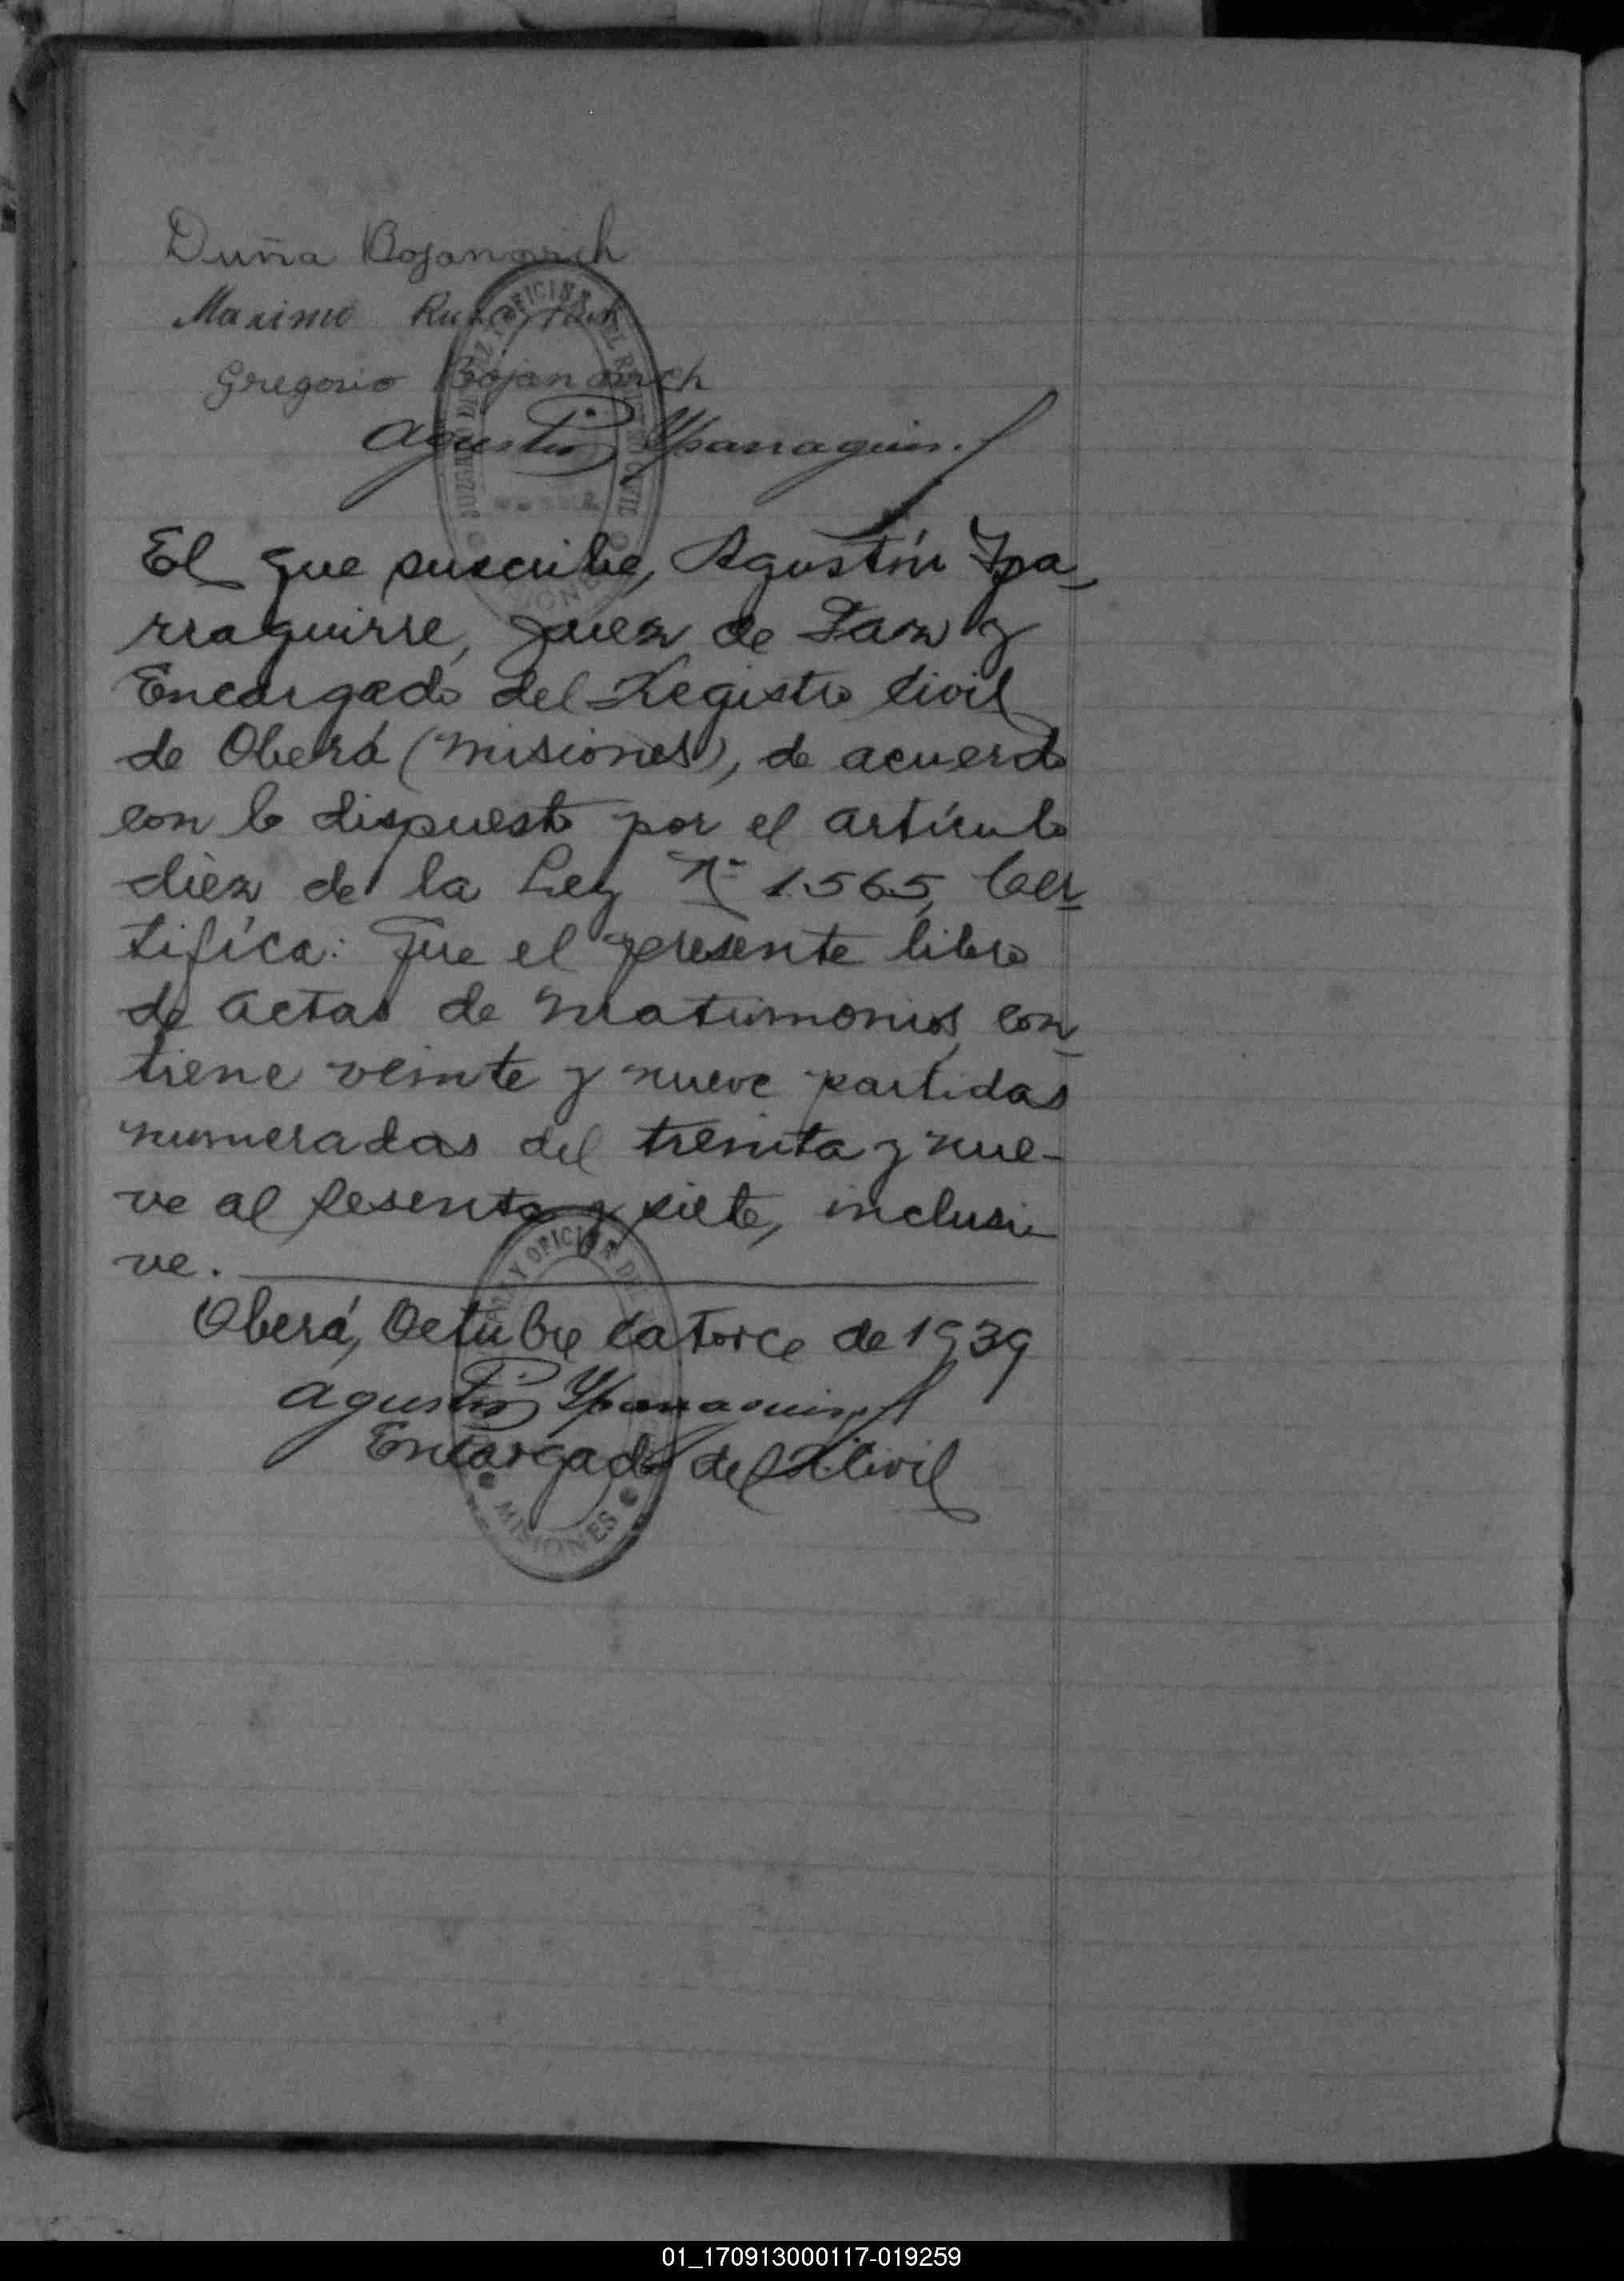 Duña Bojanovich
Maximo
Gregorio Bojanovich
Agustin Yparraguirre
El que suscribe, Agustín Ypa-
rraguirre, Juez de Paz y
Encargado del Registro Civil
de Oberá (Misiones), de acuerdo
con lo dispuesto por el artículo
diez de la Ley Nº 1.565, Cer-
tifica: Que el presente libro
de actas de Matrimonios, con-
tiene veinte y nueve partidas
numeradas del treinta y nue-
ve al sesenta y siete, inclusi-
ve.
Oberá, Octubre catorce de 1939
Agustin Yparraguirre
Encargado del R. Civil
MISIONES
01_170913000117-019259